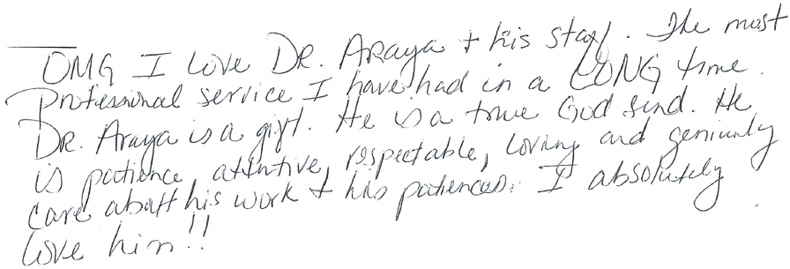 OMG I Love DR. ARAYA + his staff. The most
Professional service I have had in a LONG time.
DR. Araya is a gift. He is a true God send. He
is patience, attentive, respectable, loving and geniunly
care abatt his work + his patiences. I absolutely
love him!!